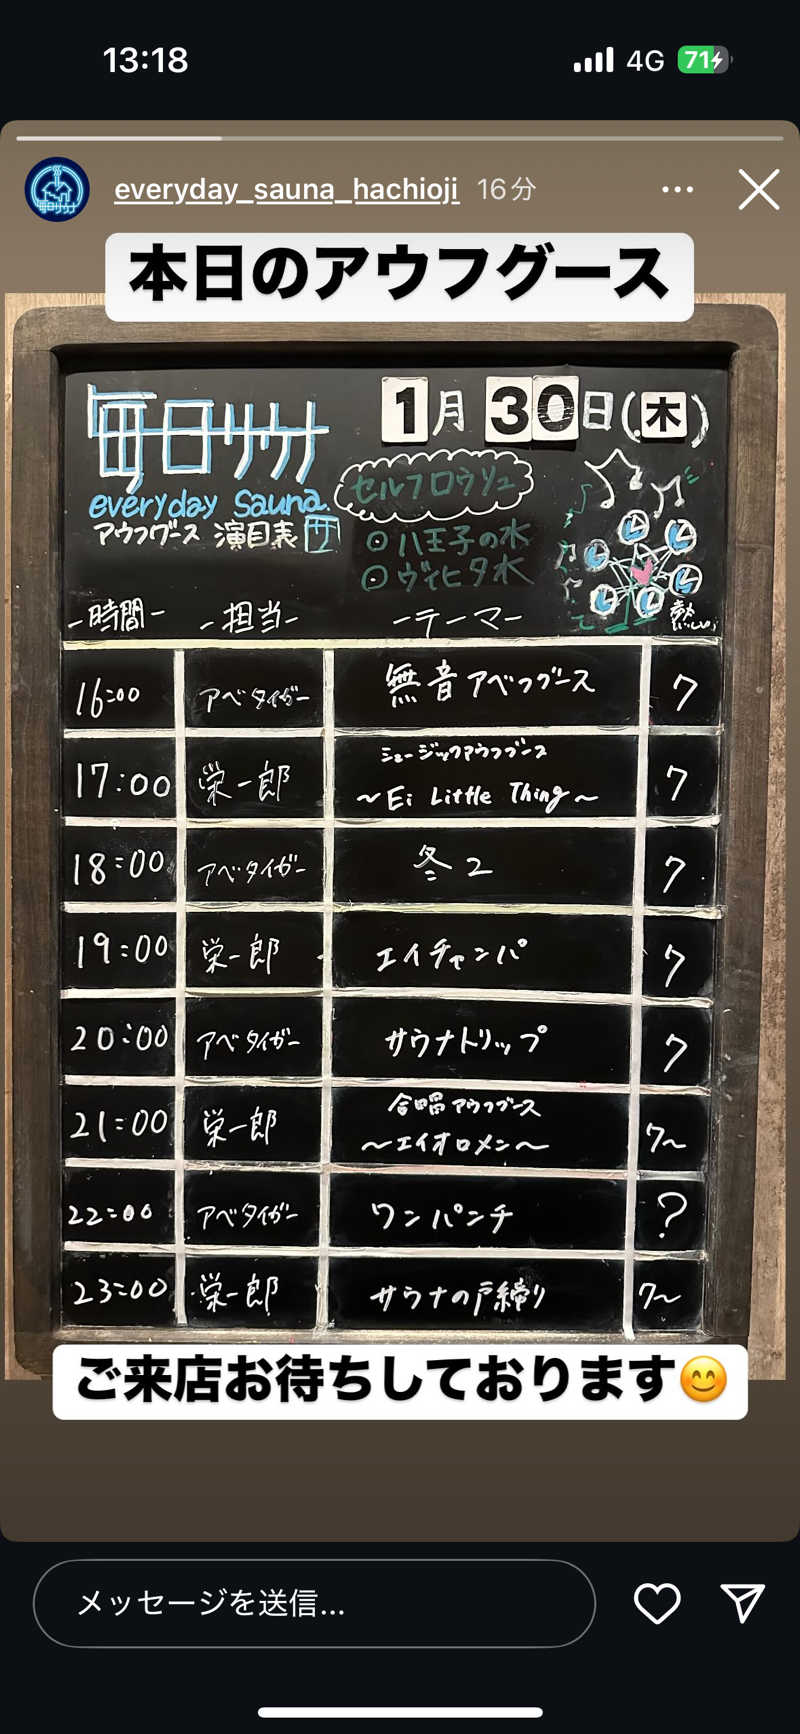 13:18
4G 71
everyday_sauna_hachioji 16分
本日のアウフグース
毎日サウナ
1月30日(木)
everyday sauna
アウフグース 演目表 サ
セルフロウリュ
八王子の水
ヴィヒタ水
-時間- -担当- -テーマ- 熱い
16:00 アベタイガー 無音アベフグース 7
17:00 栄一郎 ミュージックアウフグース
~Ei Little Thing~ 7
18:00 アベタイガー 冬2 7
19:00 栄一郎 エイチャンパ 7
20:00 アベタイガー サウナトリップ 7
21:00 栄一郎 合唱アウフグース
~エイオロメン~ 7~
22:00 アベタイガー ワンパンチ ?
23:00 栄一郎 サウナの戸締り 7~
ご来店お待ちしております😊
メッセージを送信...